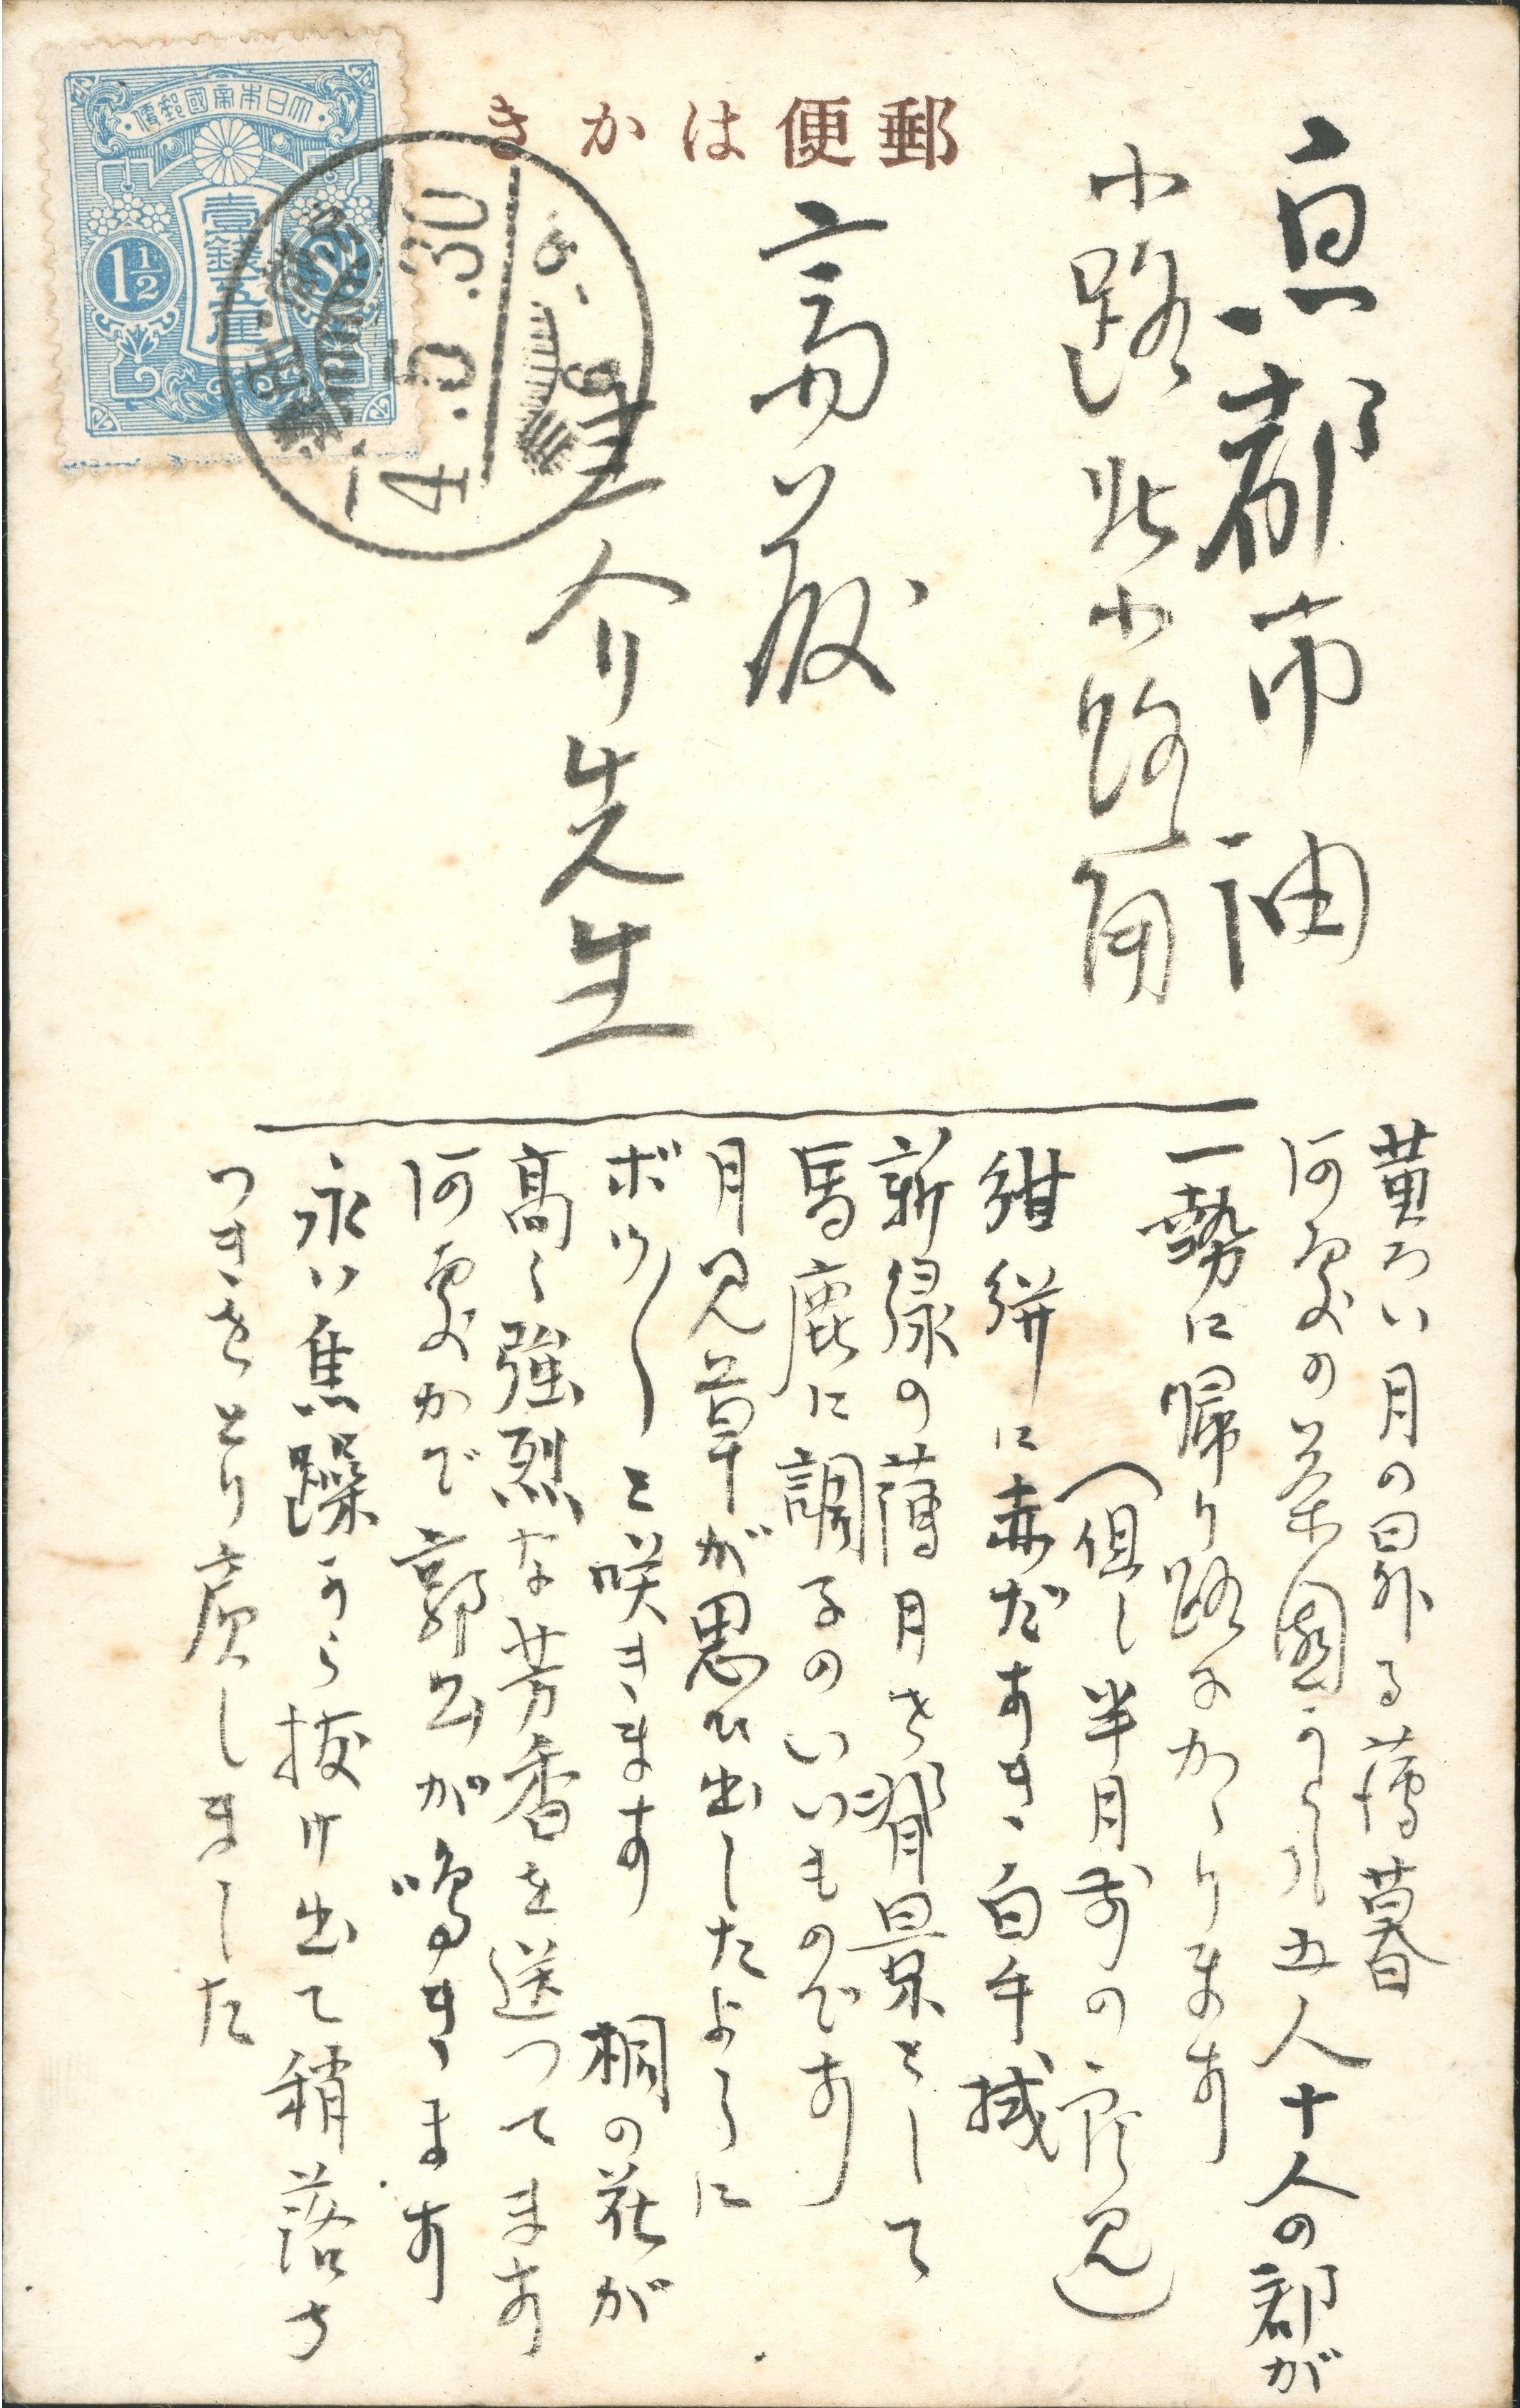 郵便はかき
大日本帝國郵便
壹錢五厘
1½
4.5.30
京都市油
小路北小路角
高蔵
圭介先生
黄ろい月の昇る薄暮
何處の茶園からも五人十人の群が
一勢に帰り路にかゝります
（但し半月前の實見）
紺絣に赤だすき、白手拭
新緑の薄月を背景として
馬鹿に調子のいいものです
月見草が思ひ出したように
ポツ〱と咲きます 桐の花が
高く強烈な芳香を送つてます
何處かで郭公が鳴きます
永い焦躁から抜け出て稍落ち
つきをとり戻しました